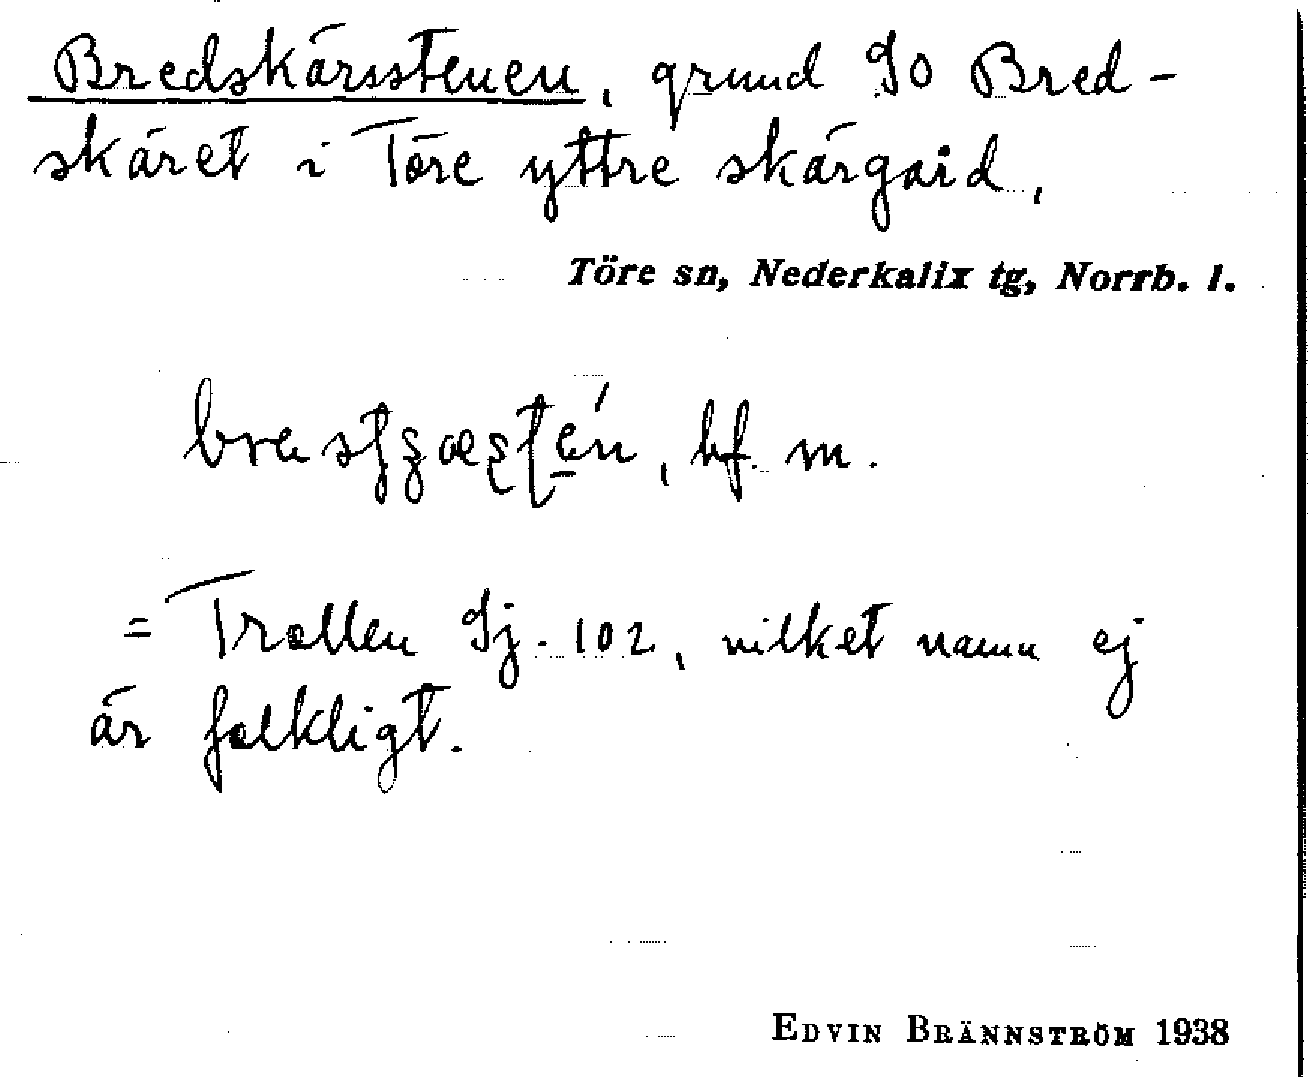 Bredskärsstenen, grund SO Bred-
skäret i Töre yttre skärgård.
Töre sn, Nederkalix tg, Norrb. l.
bf. m.
= Trollen Sj. 102, vilket namn ej
är folkligt.
EDVIN BRÄNNSTRÖM 1938